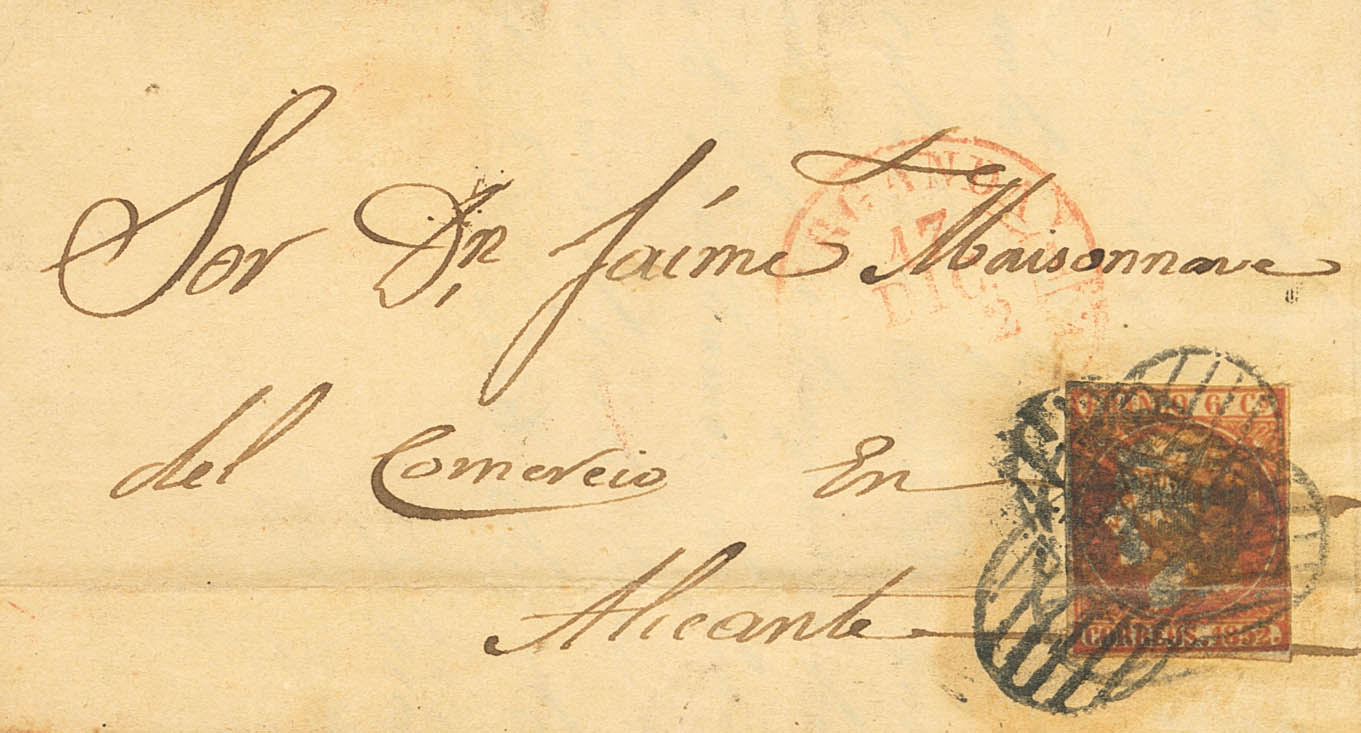 Sor Dn Jaime Maisonnave
del Comercio En
Alicante
17
DIC.
FRANCO 6 Cs
CORREOS. 1852.